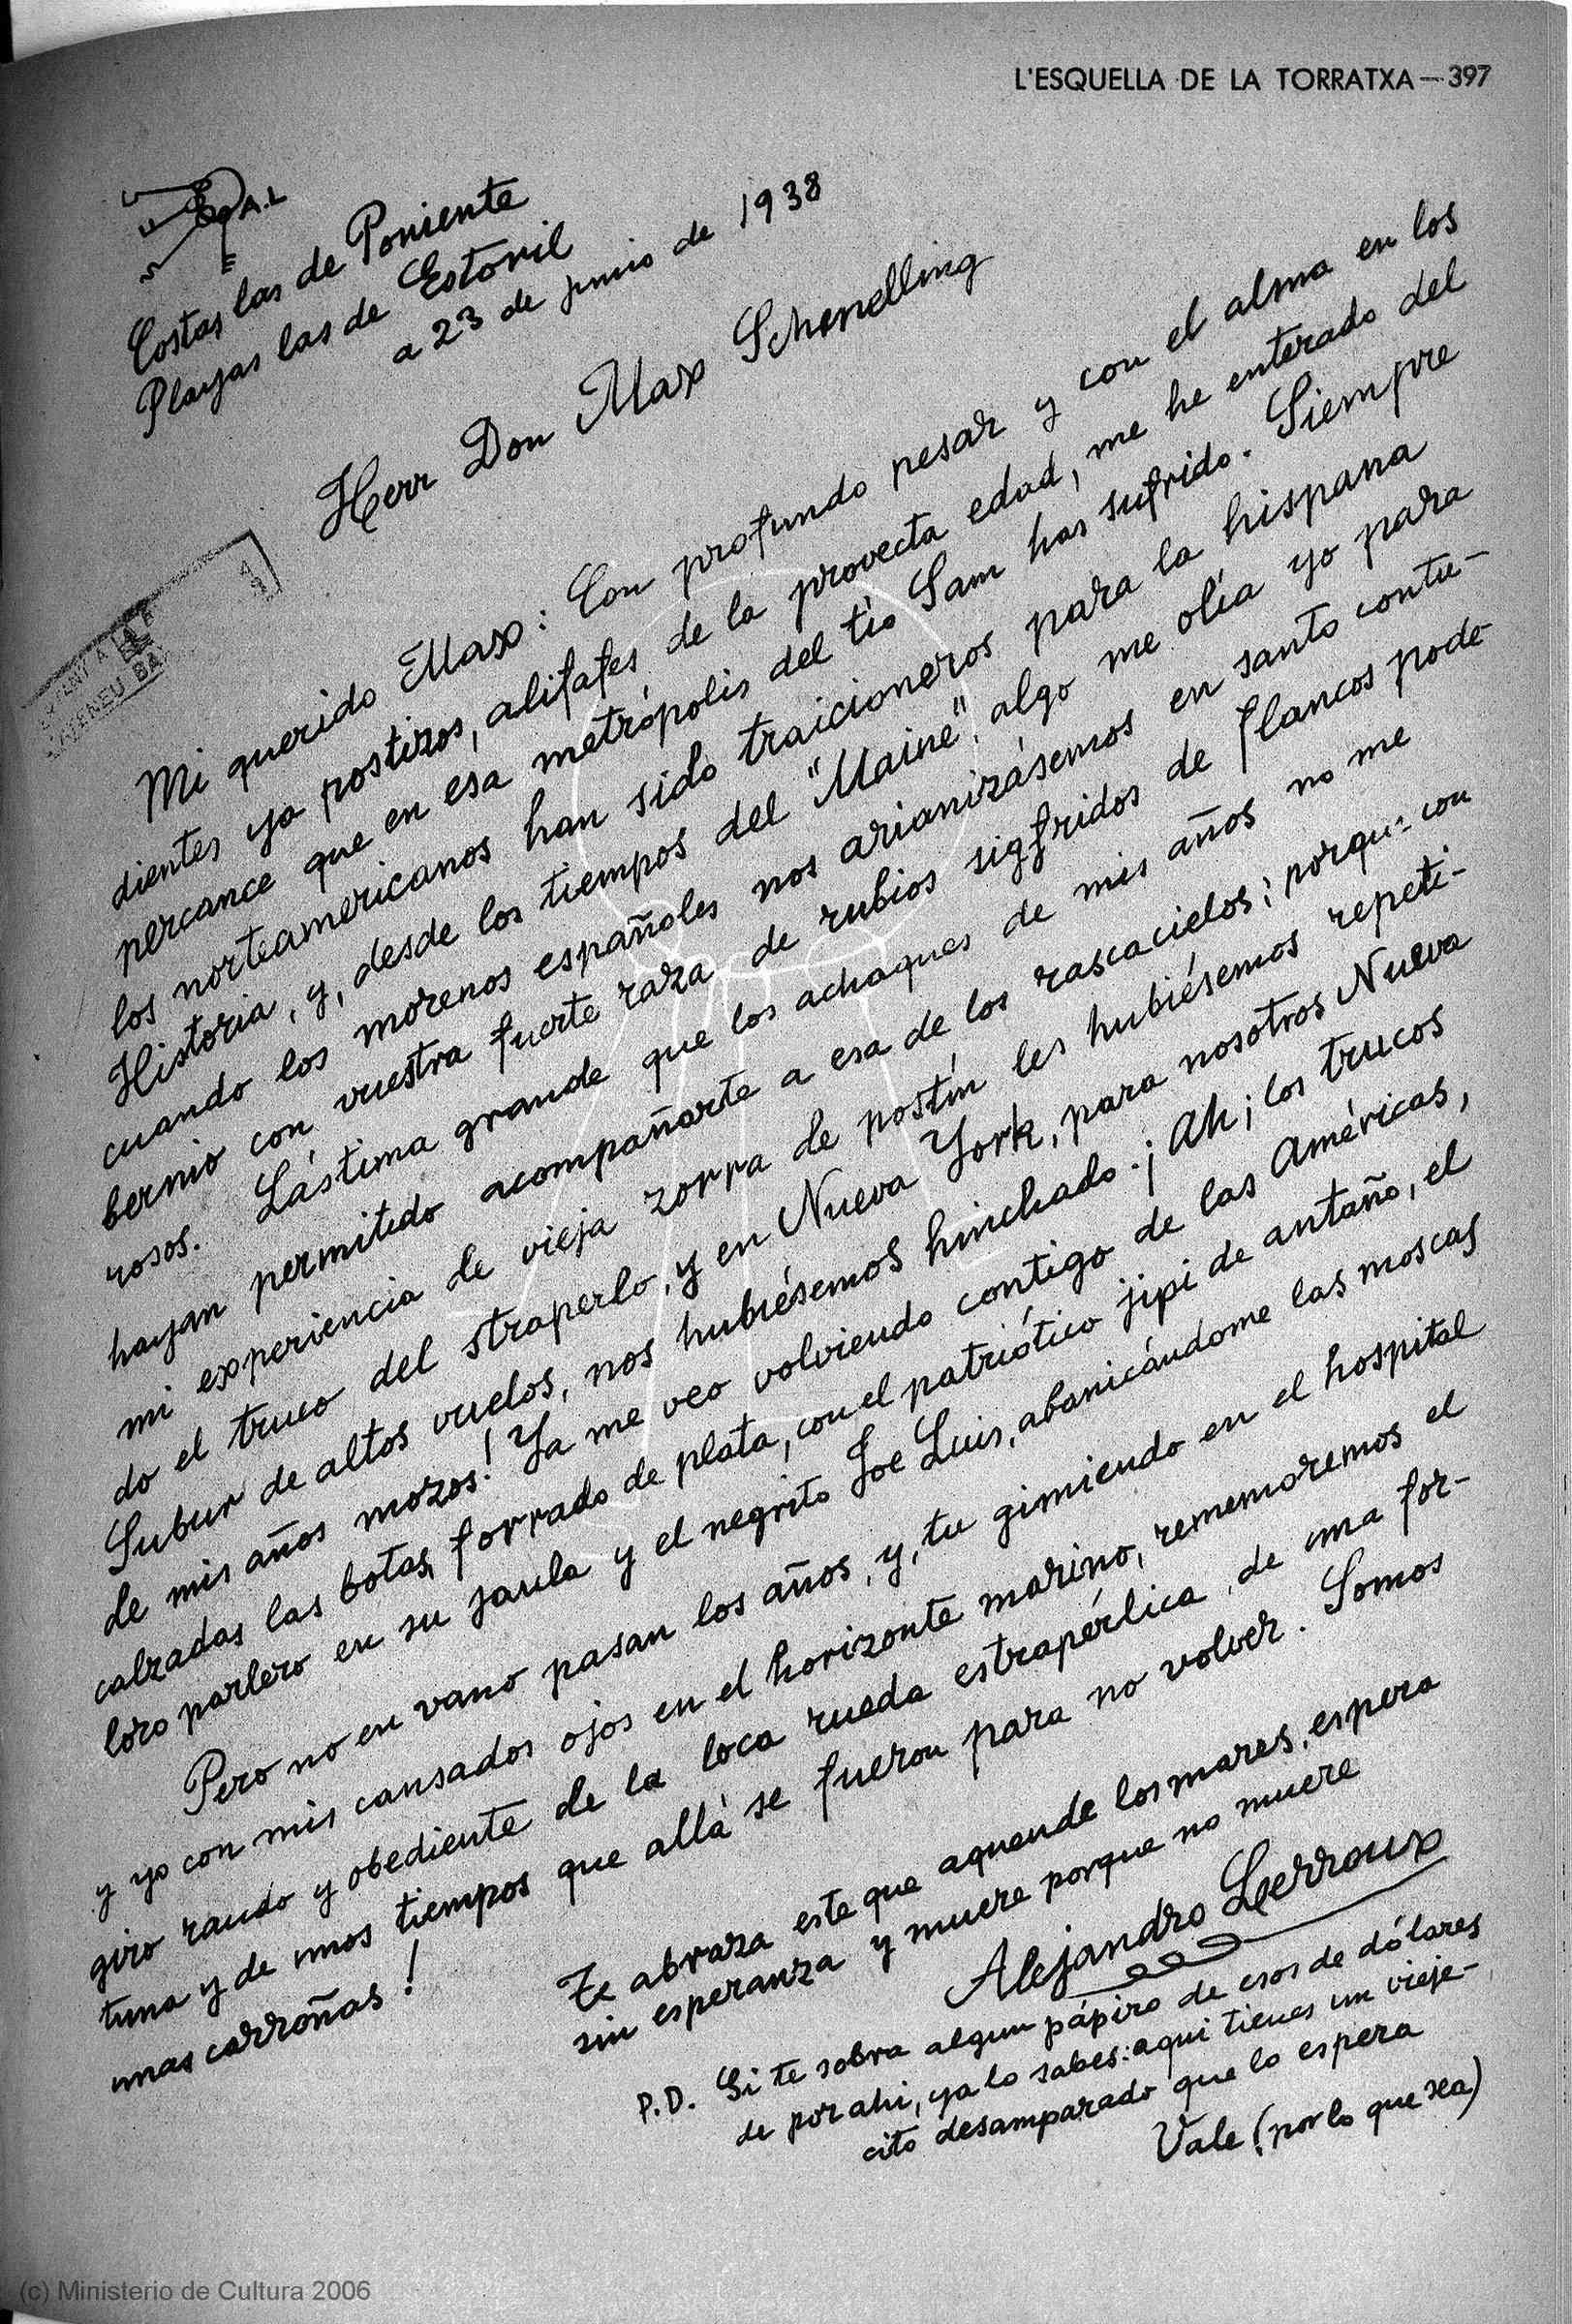 L'ESQUELLA DE LA TORRATXA — 397
A.L
Costas las de Poniente
Playas las de Estoril
a 23 de junio de 1938
Herr Don Max Schmelling
Mi querido Max: Con profundo pesar y con el alma en los
dientes ya postizos, alifafes de la provecta edad, me he enterado del
percance que en esa metrópolis del tío Sam has sufrido. Siempre
los norteamericanos han sido traicioneros para la hispana
Historia, y, desde los tiempos del "Maine", algo me olía yo para
cuando los morenos españoles nos arianizásemos en santo contu-
bernio con vuestra fuerte raza de rubios sigfridos de flancos pode-
rosos. Lástima grande que los achaques de mis años no me
hayan permitido acompañarte a esa de los rascacielos; porque con
mi experiencia de vieja zorra de postín les hubiésemos repeti-
do el truco del straperlo, y en Nueva York, para nosotros Nueva
Subur de altos vuelos, nos hubiésemos hinchado. ¡Ah; los trucos
de mis años mozos! Ya me veo volviendo contigo de las Américas,
calzadas las botas, forrado de plata, con el patriótico jipi de antaño, el
loro parlero en su jaula y el negrito Joe Luis, abanicándome las moscas
Pero no en vano pasan los años, y, tu gimiendo en el hospital
y yo con mis cansados ojos en el horizonte marino, rememoremos el
giro raudo y obediente de la loca rueda estrapérlica, de una for-
tuna y de unos tiempos que allá se fueron para no volver. Somos
unas carroñas!
Te abraza este que aquende los mares, espera
sin esperanza y muere porque no muere
Alejandro Lerroux
P.D. Si te sobra algun pápiro de esos de dólares
de por ahi, ya lo sabes: aqui tienes un vieje-
cito desamparado que lo espera
Vale (por lo que sea)
ATENEU BA
(c) Ministerio de Cultura 2006